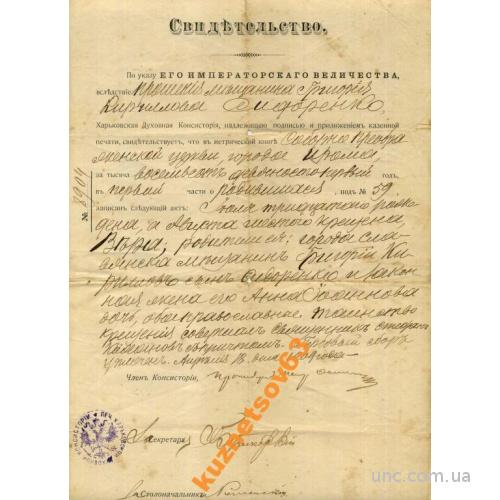 Свидѣтельство,
По указу ЕГО ИМПЕРАТОРСКАГО ВЕЛИЧЕСТВА,
вслѣдствіе прошенія мѣщанина Григорія
Кириллова Сидоренко
Харьковская Духовная Консисторія, надлежащею подписью и приложеніемъ казенной
печати, свидѣтельствуетъ, что въ метрической книгѣ Соборно Преобра
женской церкви, города Изюма,
за тысяча восемьсотъ девяносто первый годъ,
въ первой части о родившихся, подъ № 59
записанъ слѣдующій актъ: Іюля тридцатаго рож
дена, а Августа крещена
Вѣра; родители ея: города Сла
вянска мѣщанинъ Григорій Ки
рилловъ сынъ Сидоренко и закон
ная жена его Анна Іоаннова
дочь, оба православные. Таинство
крещенія совершалъ Священникъ
уплоченъ. Апрѣля
Членъ Консисторіи,
За Секретаря
За Столоначальника
№ 8904
kuznetsov63
unc.com.ua